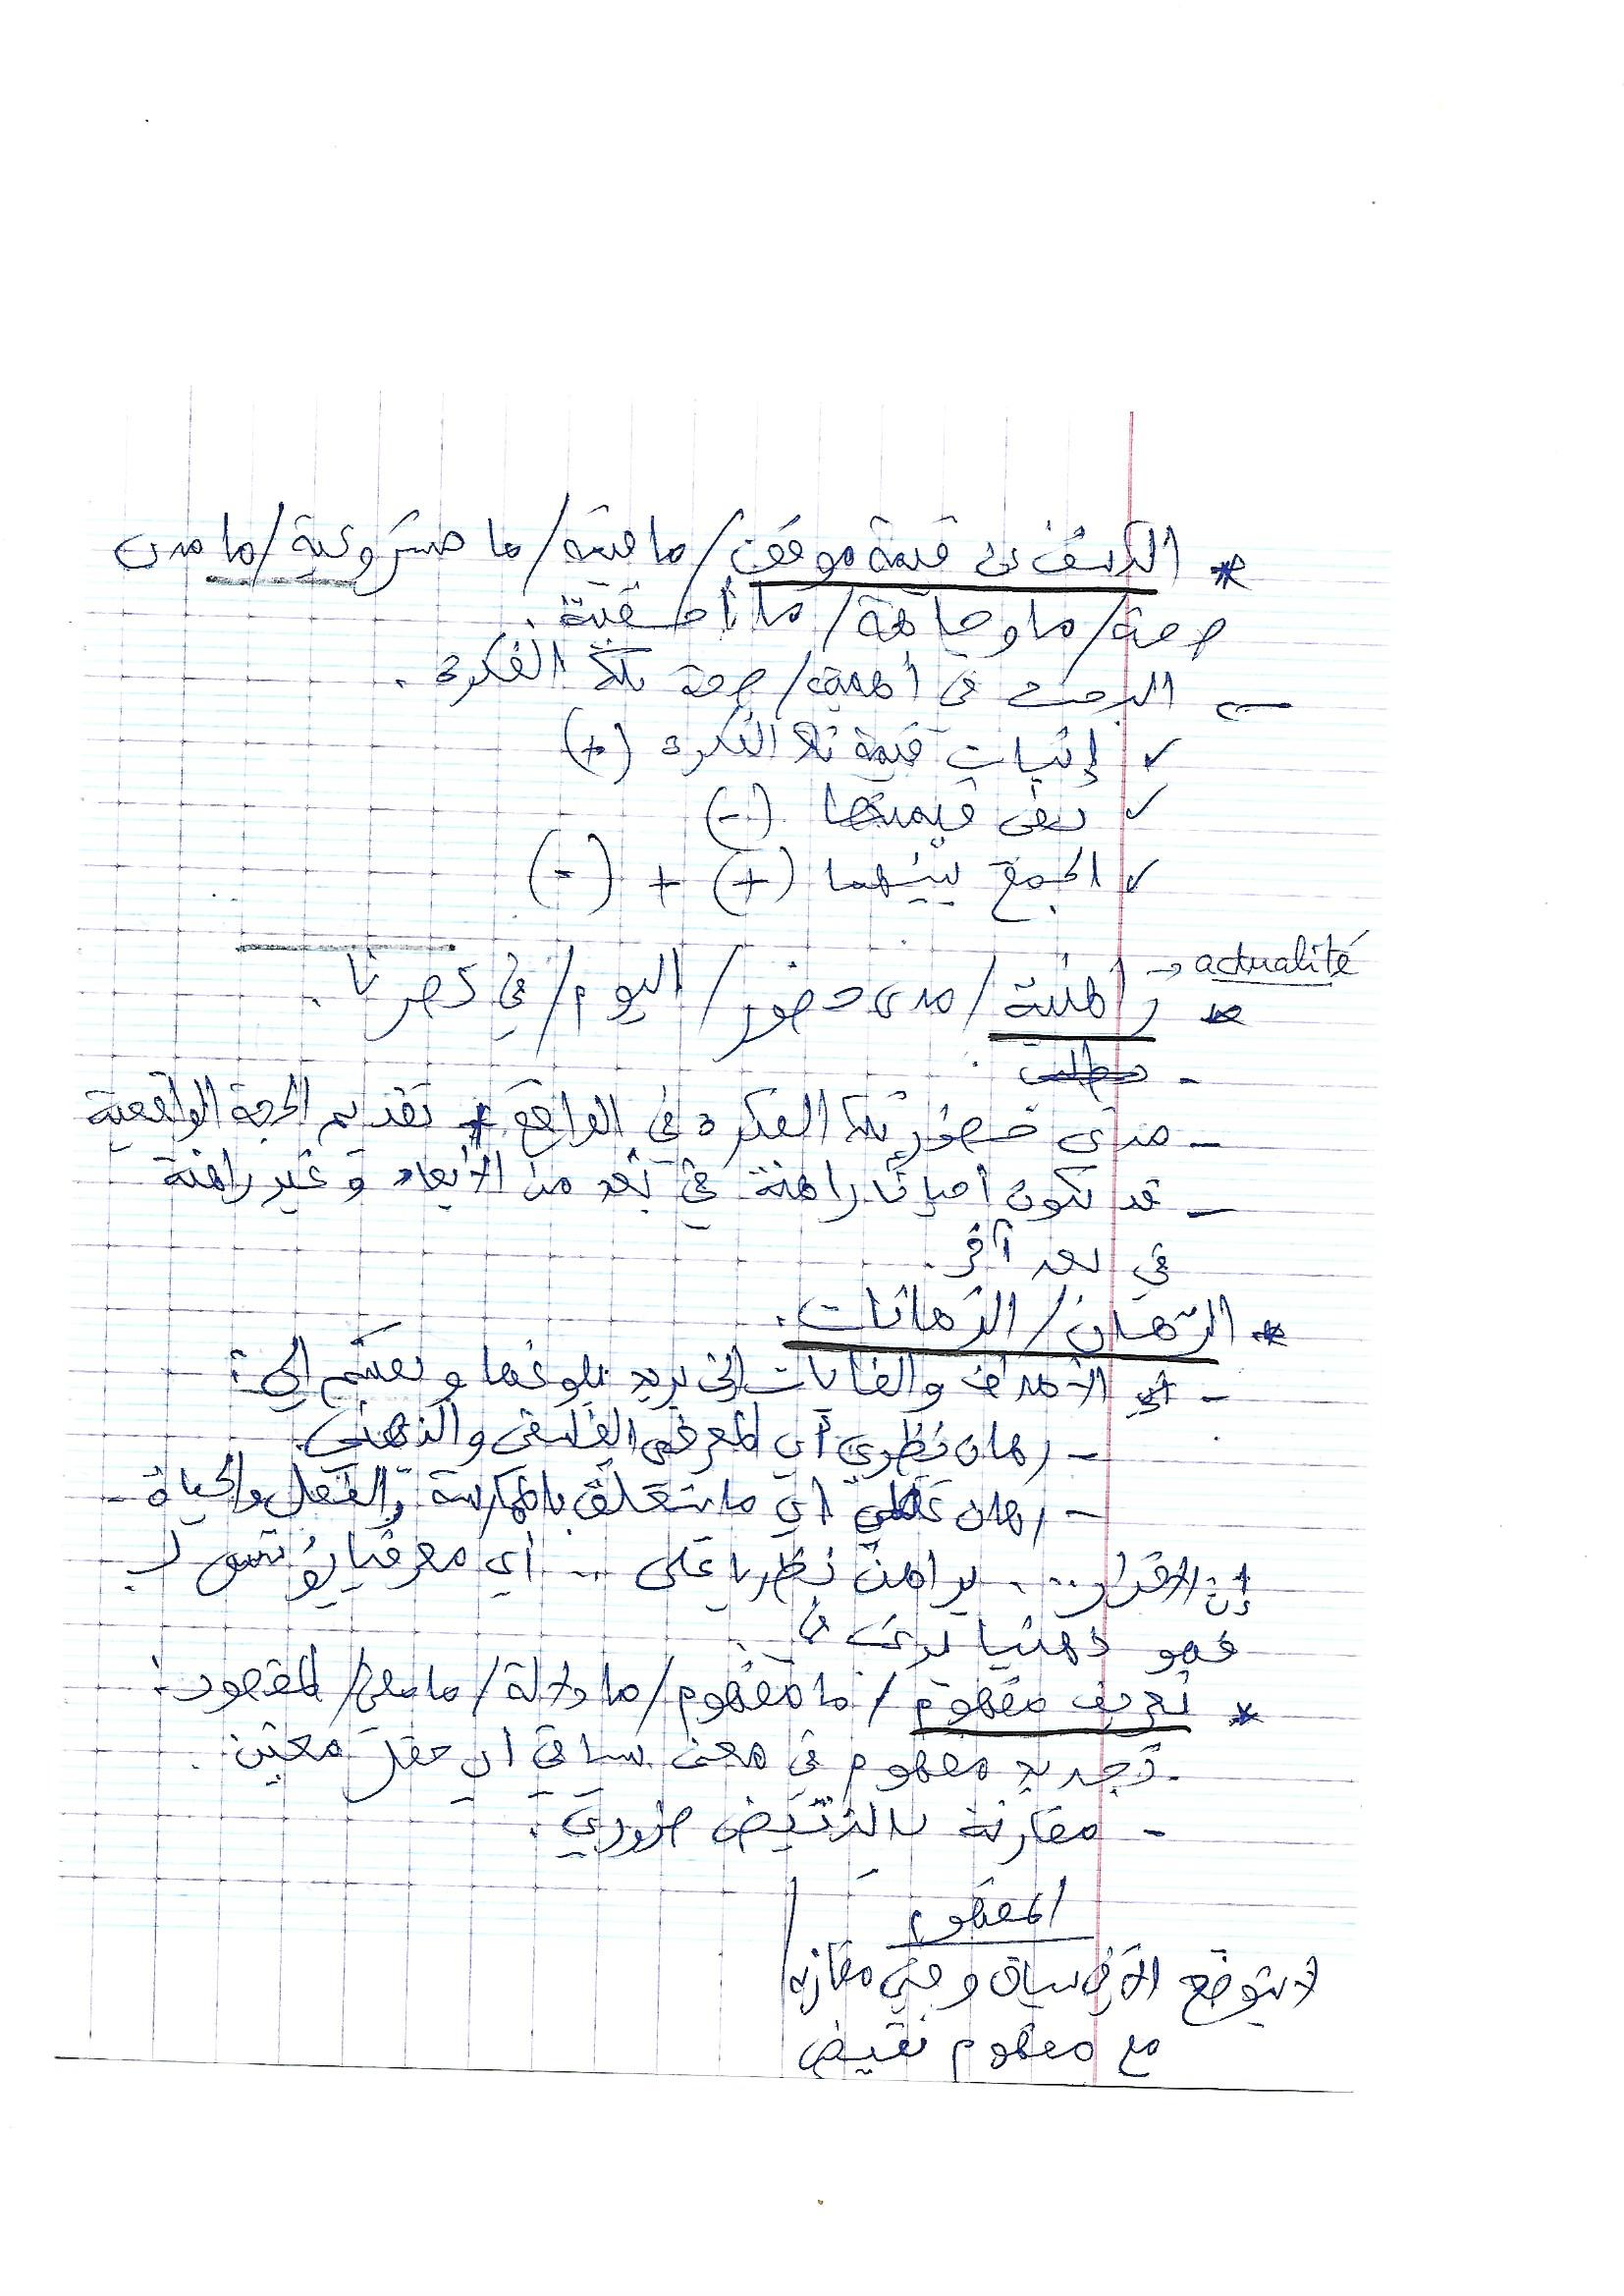 * الكشف عن قيمة موقف / ما قيمة / ما مشروعية / ما مدى
صحة / ما وجاهة / ما أحقية .
البحث في أهمية / صحة تلك الفكرة .
✓ إثبات قيمة تلك الفكرة (+)
✓ نفي قيمتها (-)
✓ الجمع بينهما (+) + (-)
actualité
* راهنية / مدى حضور / اليوم / في عصرنا .
- مدى حضور تلك الفكرة في الواقع + تقديم الحجة الواقعية
- قد تكون أحيانا راهنة في بُعد من الأبعاد و غير راهنة
في بعد آخر .
* الرّهان / الرّهانات .
- أي الأهداف والغايات التي يريد بلوغها و تنقسم إلى :
- رهان نظري أي المعرفي الفلسفي والذهني .
- رهان عملي أي ما يتعلق بالممارسة والفعل والحياة .
إن الإقرار ... يراهن نظريا على ... أي معرفيا يؤسس لـ
فهو ذهنيا
* تعريف مفهوم / ما مفهوم / ما دلالة / ما معنى / المقصود :
- تحديد مفهوم في معنى سياقي أي حقل معيّن .
- مقارنة بالنّقيض ضروري .
المفهوم
لا يتوضح إلا في سياق و في مقارنة
مع مفهوم نقيض